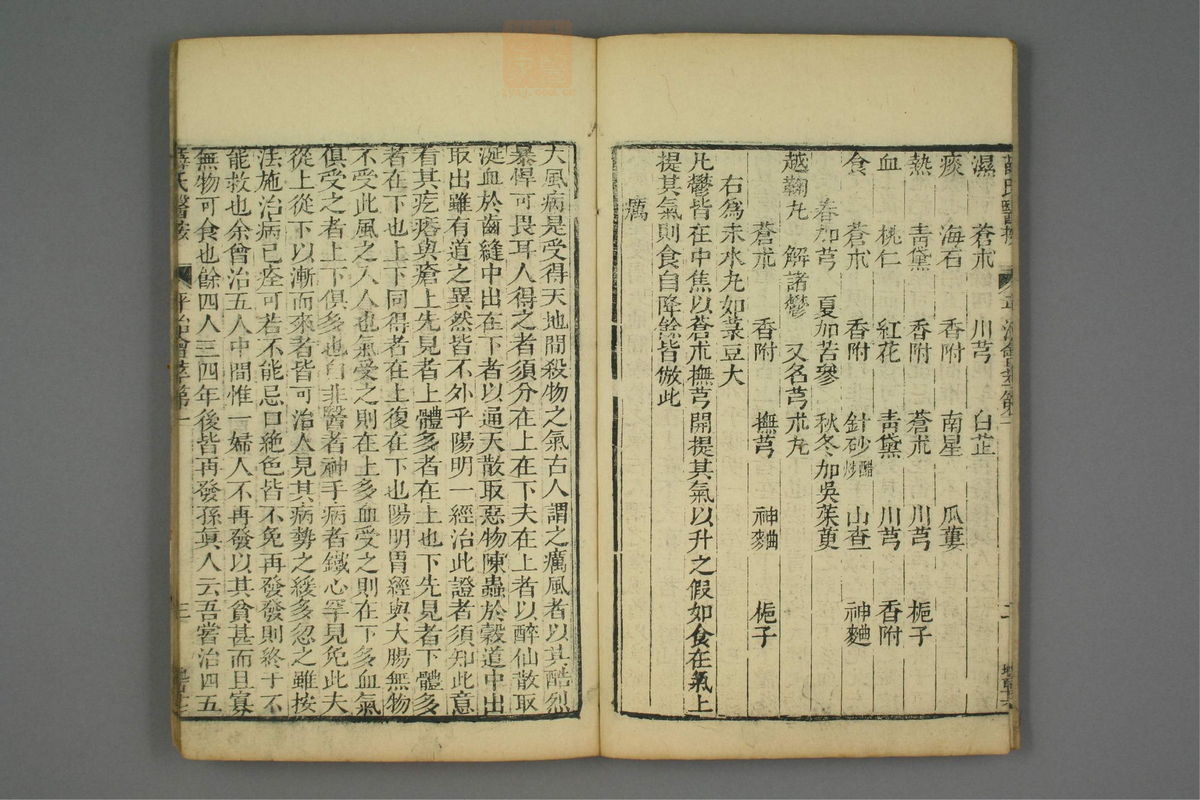 濕　蒼朮　川芎　白芷
痰　海石　香附　南星　瓜蔞
熱　青黛　香附　蒼朮　川芎　梔子
血　桃仁　紅花　青黛　川芎　香附
食　蒼朮　香附　針砂醋炒　山查　神麯
春加芎　夏加苦參　秋冬加吳茱萸
越鞠丸　解諸鬱　又名芎朮丸
蒼朮　香附　撫芎　神麯　梔子
右為末水丸如菉豆大
凡鬱皆在中焦以蒼朮撫芎開提其氣以升之假如食在氣上
提其氣則食自降餘皆倣此
癘
大風病是受得天地間殺物之氣古人謂之癘風者以其酷烈
暴悍可畏耳人得之者須分在上在下夫在上者以醉仙散取
涎血於齒縫中出在下者以通天散取惡物陳蟲於穀道中出
取出雖有道之異然皆不外乎陽明一經治此證者須知此意
看其疙瘩與瘡上先見者上體多者在上也下先見者下體多
者在下也上下同得者在上復在下也陽明胃經與大腸無物
不受此風之入人也氣受之則在上多血受之則在下多血氣
俱受之者上下俱多也自非醫者神手病者鐵心罕見免此夫
從上從下以漸而來者皆可治人見其病勢之緩多忽之雖按
法施治病已痊可若不能忌口絕色皆不免再發發則終于不
能救也余曾治五人中間惟一婦人不再發以其貧甚而且寡
無物可食也餘四人三四年後皆再發孫真人云吾嘗治四五
薛氏醫按　平治會萃卷一　三